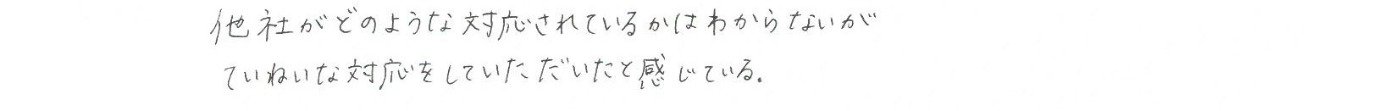 他社がどのような対応されているかはわからないが
ていねいな対応をしていただいたと感じている。